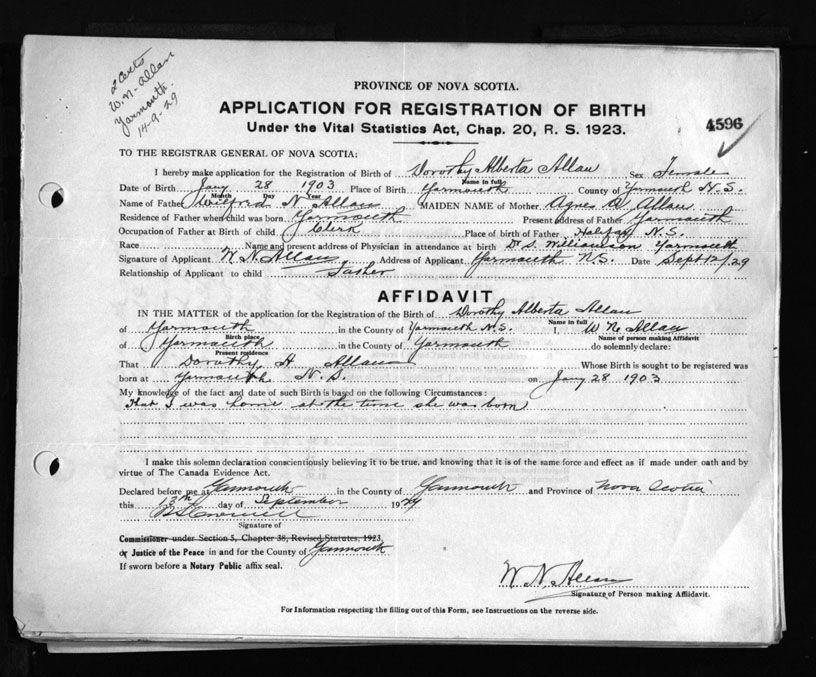 2 Certs
W. N. Allan
Yarmouth.
14-9-29
PROVINCE OF NOVA SCOTIA.
APPLICATION FOR REGISTRATION OF BIRTH
Under the Vital Statistics Act, Chap. 20, R. S. 1923.
4596
TO THE REGISTRAR GENERAL OF NOVA SCOTIA:
I hereby make application for the Registration of Birth of Dorothy Alberta Allan Sex Female
Name in full
Date of Birth Jany 28 1903 Place of Birth Yarmouth County of Yarmouth N.S.
Month Day Year
Name of Father Wilfred N. Allan MAIDEN NAME of Mother Agnes Allan
Residence of Father when child was born Yarmouth Present Address of Father Yarmouth
Occupation of Father at Birth of child Clerk Place of birth of Father Halifax N.S.
Race Name and present address of Physician in attendance at birth Dr S. Williamson Yarmouth
Signature of Applicant W. N. Allan Address of Applicant Yarmouth N.S. Date Sept 12/29
Relationship of Applicant to child Father
AFFIDAVIT
IN THE MATTER of the application for the Registration of the Birth of Dorothy Alberta Allan
Name in full
of Yarmouth in the County of Yarmouth N.S. I, W N. Allan
Birth place Name of person making Affidavit
of Yarmouth in the County of Yarmouth do solemnly declare:
Present residence
That Dorothy A Allan Whose Birth is sought to be registered was
born at Yarmouth N.S. on Jany 28 1903
My knowledge of the fact and date of such Birth is based on the following Circumstances:
that I was home at the time she was born
I make this solemn declaration conscientiously believing it to be true, and knowing that it is of the same force and effect as if made under oath and by
virtue of The Canada Evidence Act.
Declared before me at Yarmouth in the County of Yarmouth and Province of Nova Scotia
this 13th day of September 1929
Signature of
Commissioner under Section 5, Chapter 38, Revised Statutes, 1923,
or Justice of the Peace in and for the County of Yarmouth
If sworn before a Notary Public affix seal.
W. N. Allan
Signature of Person making Affidavit.
For Information respecting the filling out of this Form, see Instructions on the reverse side.